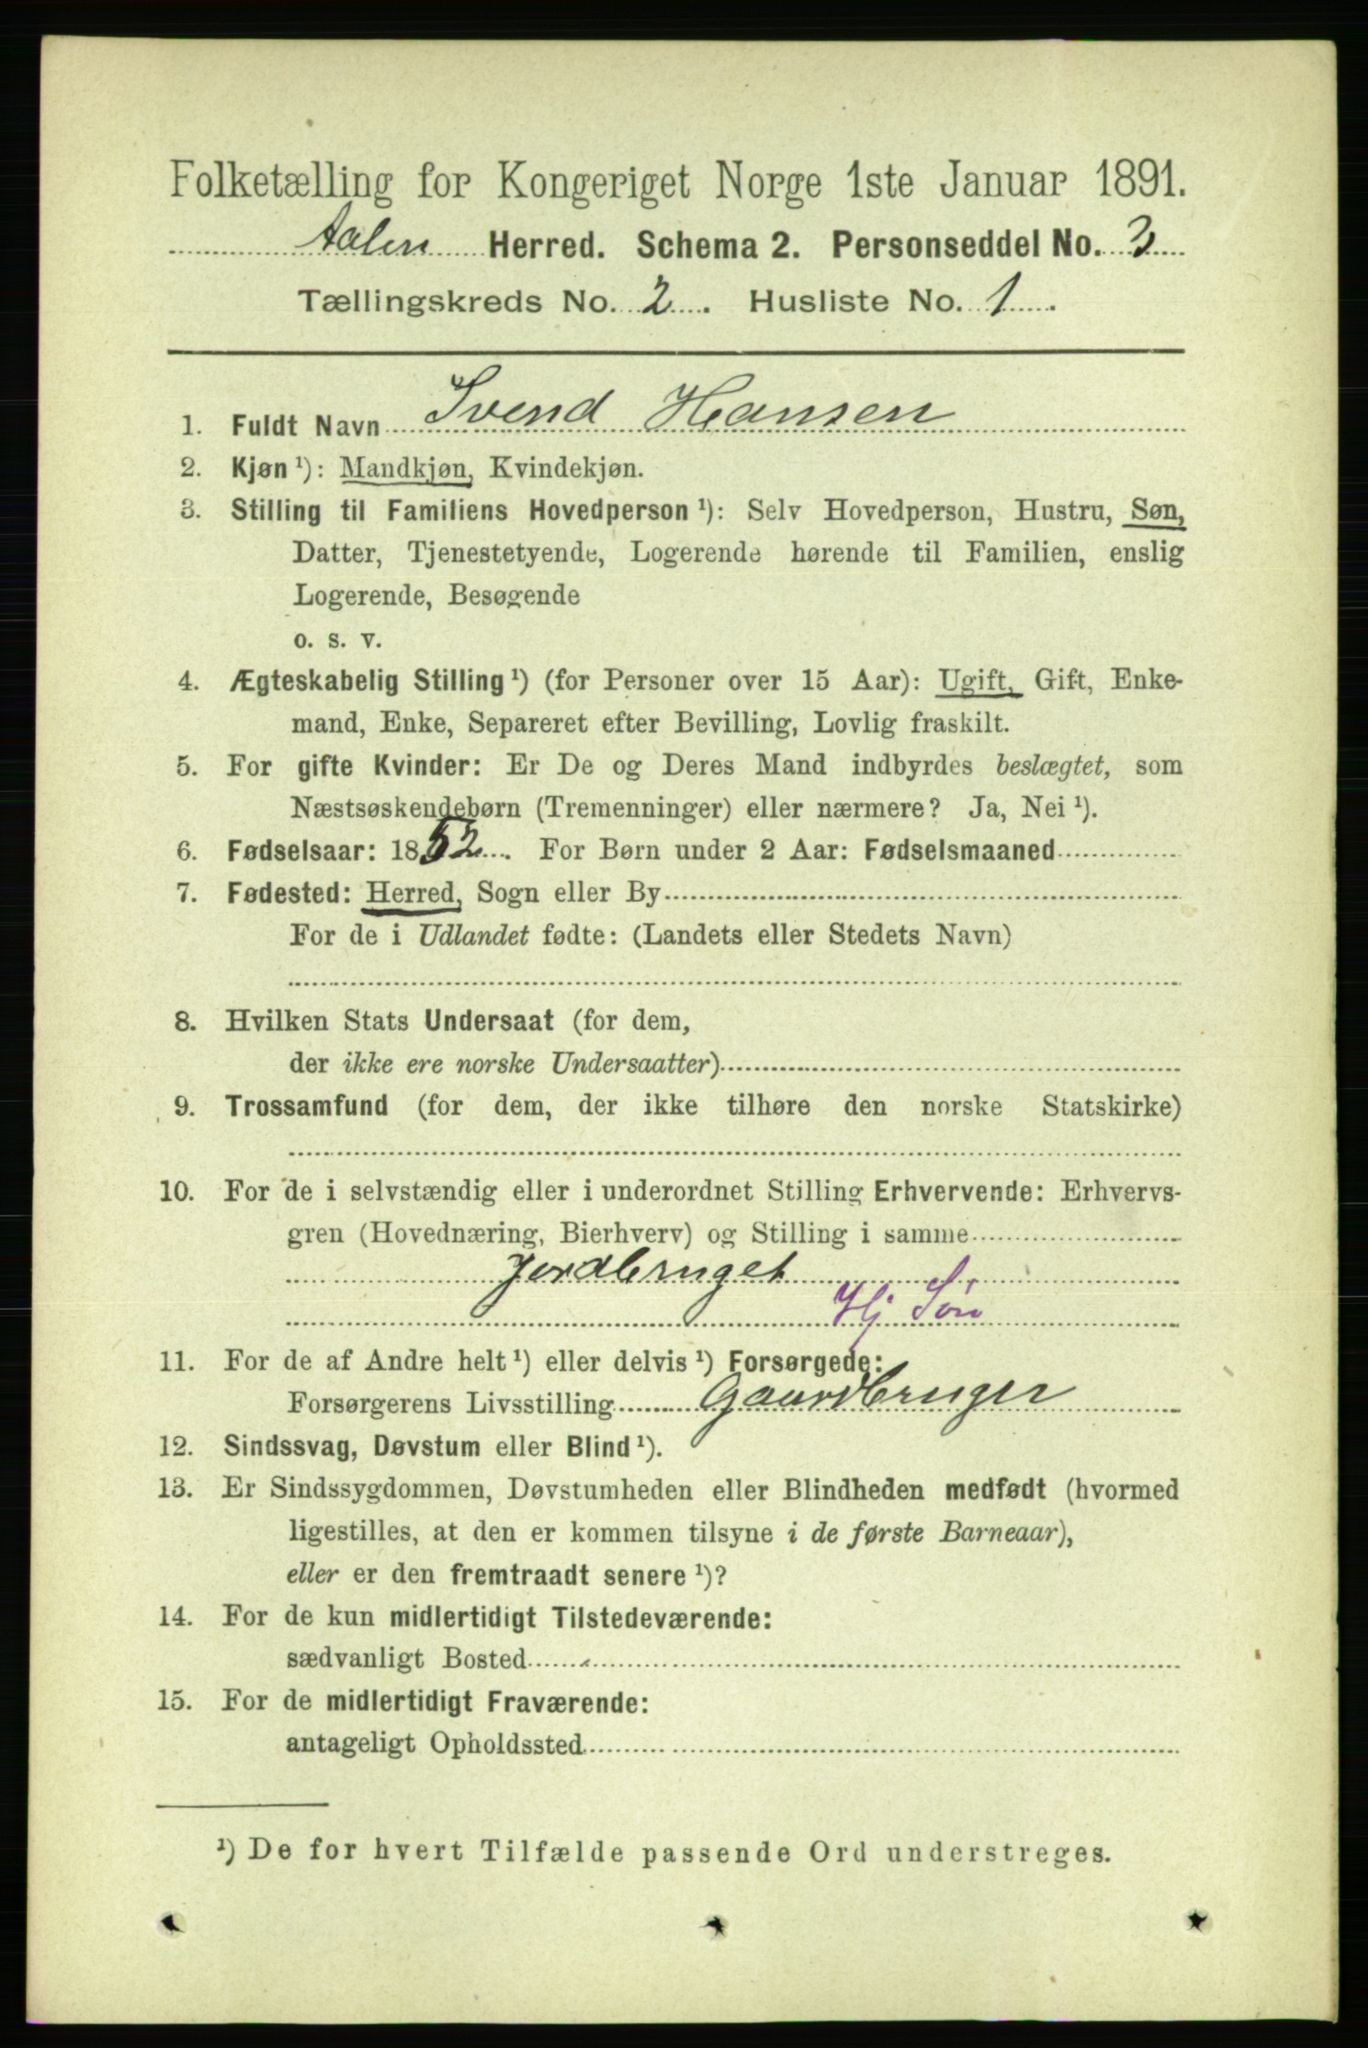 Folketælling for Kongeriget Norge 1ste Januar 1891.
Aalen Herred. Schema 2. Personseddel No. 3
Tællingskreds No. 2. Husliste No. 1.
1. Fuldt Navn Svend Hansen
2. Kjøn ¹): Mandkjøn, Kvindekjøn.
3. Stilling til Familiens Hovedperson ¹): Selv Hovedperson, Hustru, Søn,
Datter, Tjenestetyende, Logerende hørende til Familien, enslig
Logerende, Besøgende
o. s. v.
4. Ægteskabelig Stilling ¹) (for Personer over 15 Aar): Ugift, Gift, Enke-
mand, Enke, Separeret efter Bevilling, Lovlig fraskilt.
5. For gifte Kvinder: Er De og Deres Mand indbyrdes beslægtet, som
Næstsøskendebørn (Tremenninger) eller nærmere? Ja, Nei ¹).
6. Fødselsaar: 1852. For Børn under 2 Aar: Fødselsmaaned
7. Fødested: Herred, Sogn eller By
For de i Udlandet fødte: (Landets eller Stedets Navn)
8. Hvilken Stats Undersaat (for dem,
der ikke ere norske Undersaatter)
9. Trossamfund (for dem, der ikke tilhøre den norske Statskirke)
10. For de i selvstændig eller i underordnet Stilling Erhvervende: Erhvervs-
gren (Hovednæring, Bierhverv) og Stilling i samme
Jordbruget
Hj Søn
11. For de af Andre helt ¹) eller delvis ¹) Forsørgede:
Forsørgerens Livsstilling Gaardbruger
12. Sindssvag, Døvstum eller Blind ¹).
13. Er Sindssygdommen, Døvstumheden eller Blindheden medfødt (hvormed
ligestilles, at den er kommen tilsyne i de første Barneaar),
eller er den fremtraadt senere ¹)?
14. For de kun midlertidigt Tilstedeværende:
sædvanligt Bosted
15. For de midlertidigt Fraværende:
antageligt Opholdssted
¹) De for hvert Tilfælde passende Ord understreges.